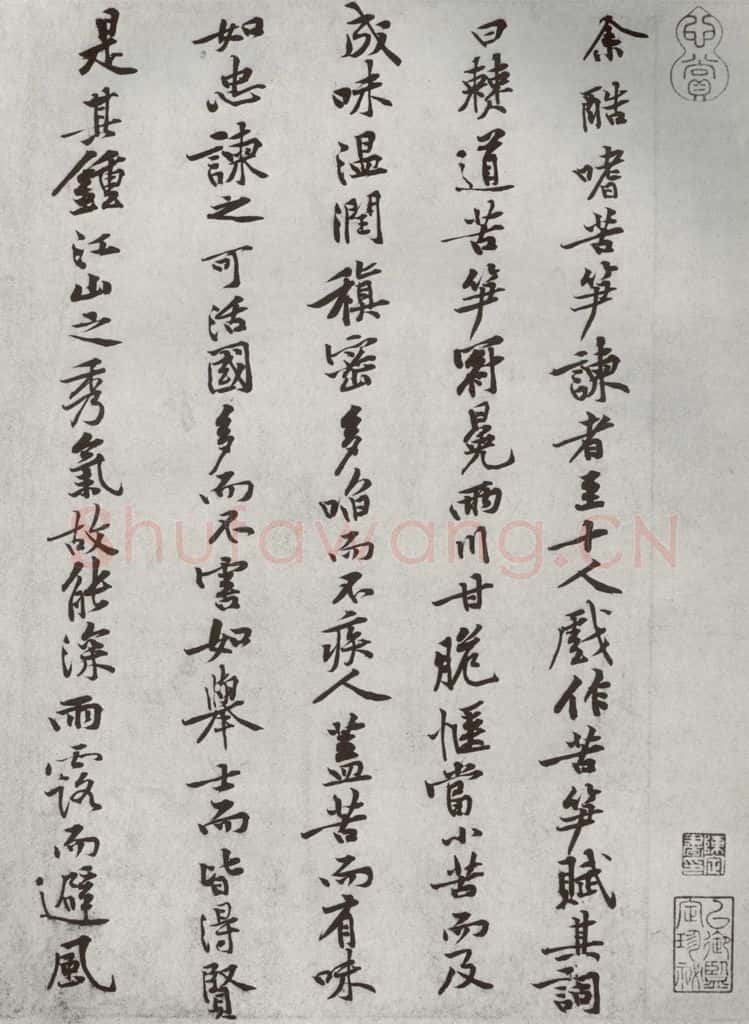 余酷嗜苦笋諫者至十人戲作苦笋賦其詞
曰僰道苦笋冠冕兩川甘脆愜當小苦而及
成味温潤稹密多啗而不疾人蓋苦而有味
如忠諫之可活國多而不害如舉士而皆得賢
是其鍾江山之秀氣故能深雨露而避風
Shufawang.CN